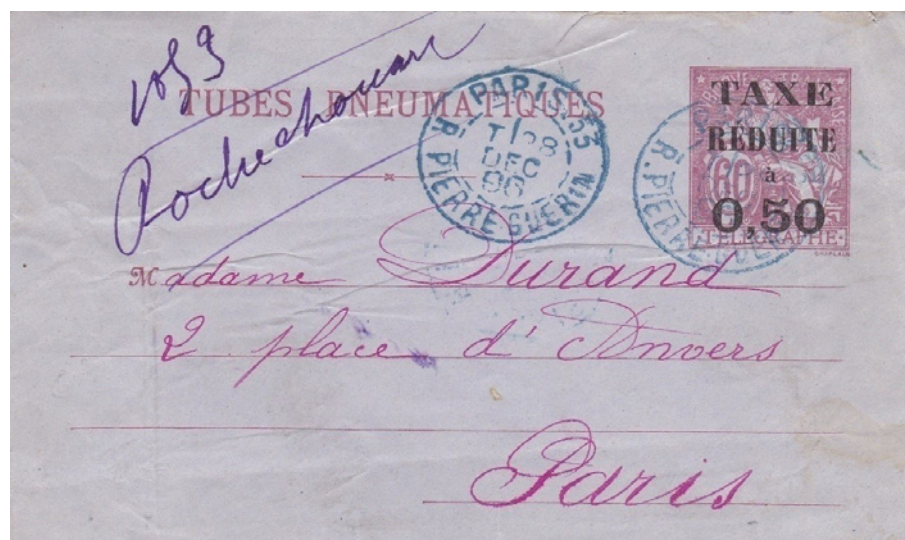 1053
Rochechouart
TUBES PNEUMATIQUES
PARIS 53
28
DEC
86
R. PIERRE GUERIN
TAXE
RÉDUITE
à
0,50
60
TELEGRAPHE
Madame Durand
2 place d'Anvers
Paris